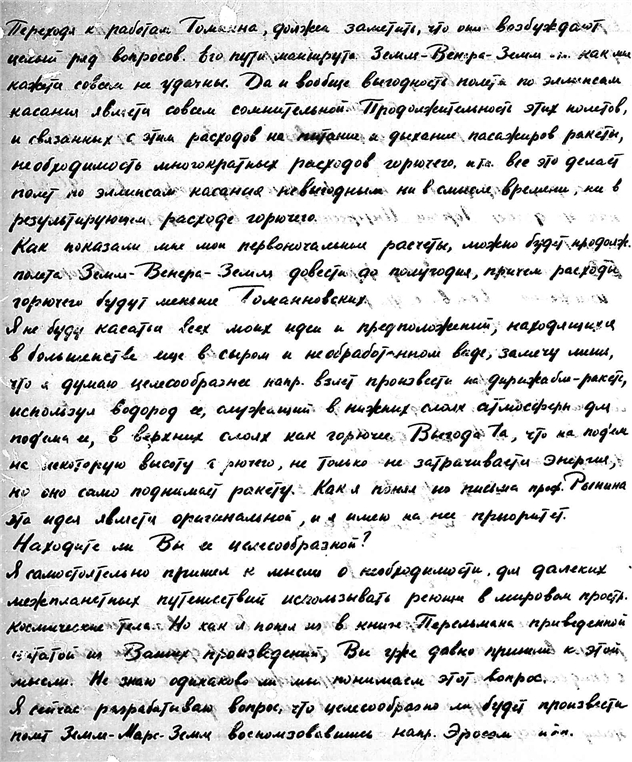 Переходя к работам Гоманна, должен заметить, что они возбуждают
целый ряд вопросов. Его пути маншрута Земля-Венера-Земля как мне
кажется совсем не удачны. Да и вообще выгодность полета по эллипсам
касания является совсем сомнительной. Продолжительность этих полетов,
и связанных с этим расходов на питание и дыхание пасажиров ракеты,
необходимость многократных расходов горючего. и т.п. все это делает
полет по эллипсам касания невыгодным ни в смысле времени, ни в
результирующем расходе горючего.
Как показали мне мои первоначальные расчеты, можно будет продолж.
полета Земля-Венера-Земля довести до полугодия, причем расходы
горючего будут меньше Гоманновских.
Я не буду касаться всех моих идеи и предположений, находящихся
в большенстве еще в сыром и необработанном виде, замечу лишь,
что я думаю целесообразнее напр. взлет произвести на дирижабле-ракете,
используя водород ее, служащий в нижних слоях атмосферы для
под'ема ее, в верхних слоях как горючее. Выгода та, что на под'ем
на некоторую высоту горючего, не только не затрачивается энергия,
но оно само поднимает ракету. Как я понял из письма проф. Рынина
эта идея является оригинальной, и я имею на нее приоритет.
Находите ли Вы ее целесообразной?
Я самостоятельно пришел к мысли о необходимости, для далеких
межпланетных путешествий использывать реющие в мировом простр.
космические тела. Но как я понял из в книге Перельмана приведенной
цитатой из Ваших произведений, Вы уже давно пришли к этой
мысли. Не знаю одинаково ли мы понимаем этот вопрос.
Я сейчас разрабатываю вопрос, что целесообразно ли будет произвести
полет Земля-Марс-Земля воспользовавшись напр. Эросом и т.п.